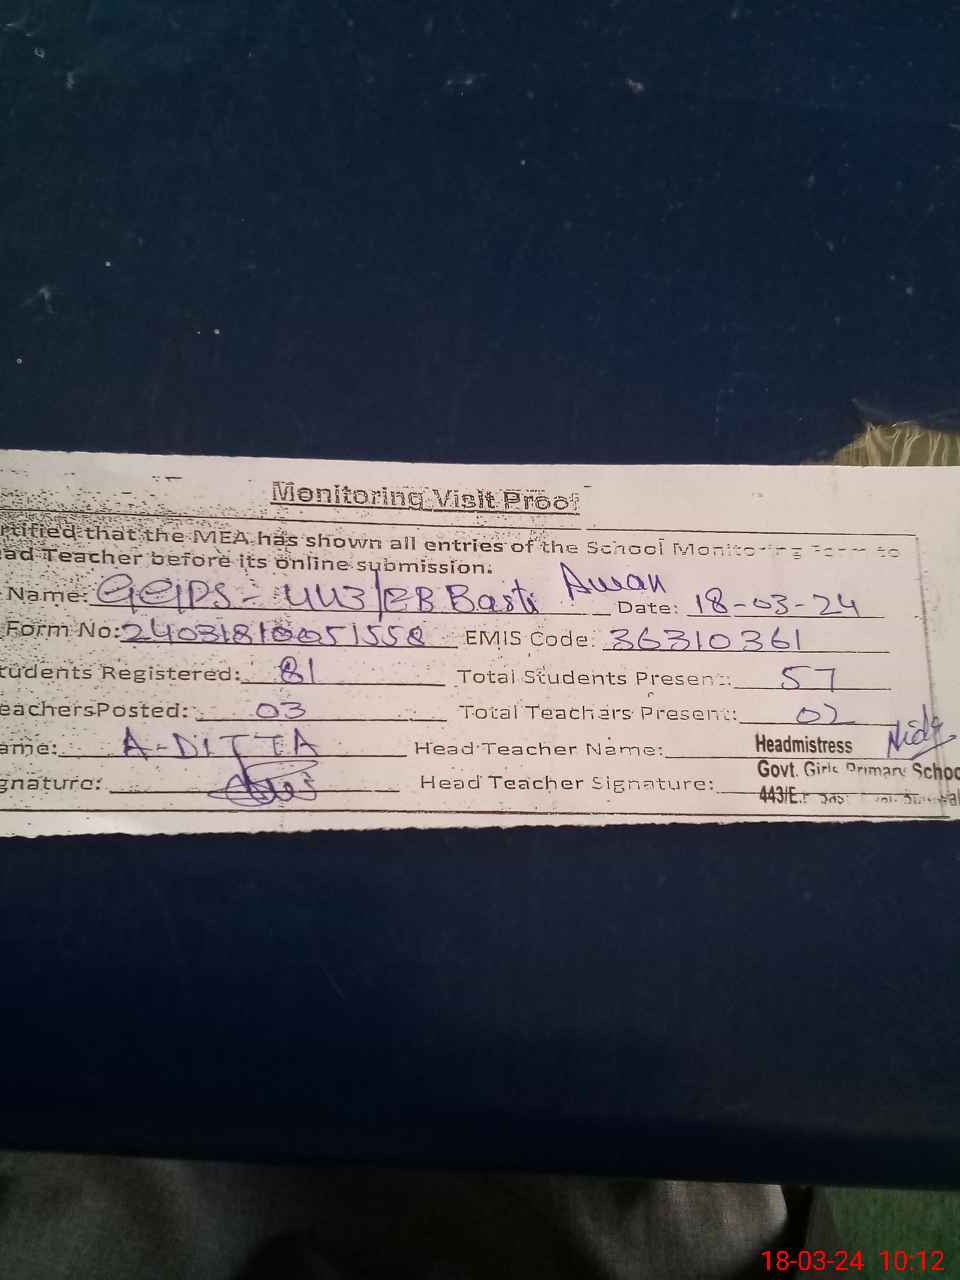 Monitoring Visit Proof
rtified that the MEA has shown all entries of the School Monitoring Form to
ad Teacher before its online submission.
Name: GGPS - 443/EB Basti Awan Date: 18-03-24
Form No: 24031810051558 EMIS Code: 36310361
tudents Registered: 81 Total Students Present: 57
eachersPosted: 03 Total Teachers Present: 02
ame: A-DITTA Head Teacher Name: Headmistress
gnature: Head Teacher Signature: Govt. Girls Primary Schoo
443/E.
18-03-24 10:12